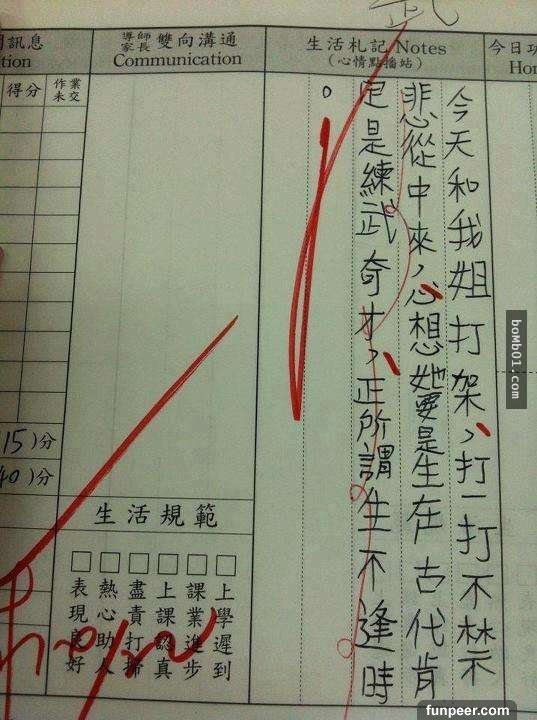 訊息
tion
導師
家長 雙向溝通
Communication
生活札記 Notes
(心情點播站)
今日
Hor
得分
作業
未交
今天和我姐打架,打一打不禁
悲從中來,心想她要是生在古代肯
定是練武奇才,正所謂生不逢時
。
15)分
40)分
生活規範
□上學遲到
□課業進步
□上課認真
□盡責打掃
□熱心助人
□表現良好
boMb01.com
funpeer.com